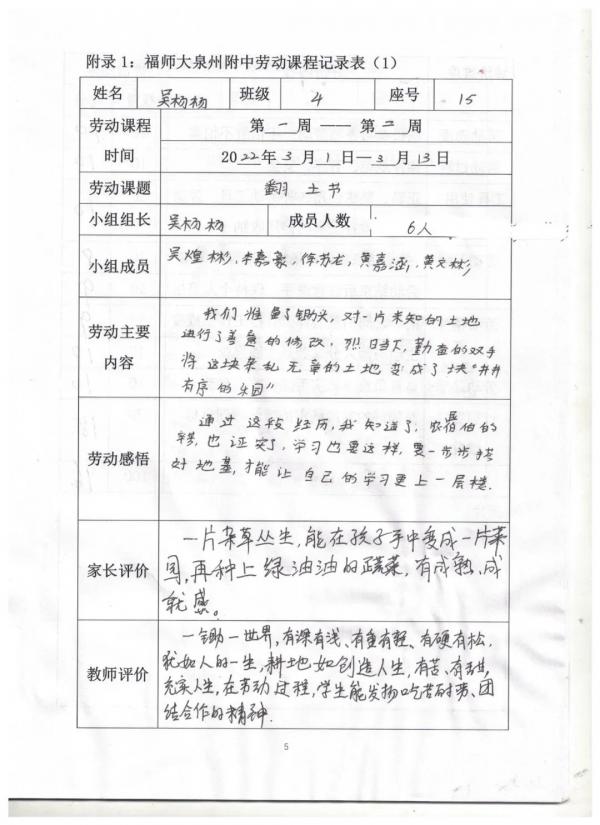 附录1：福师大泉州附中劳动课程记录表（1）
姓名 吴杨杨 班级 4 座号 15
劳动课程时间 第一周——第二周
2022年3月1日—3月13日
劳动课题 翻土书
小组组长 吴杨杨 成员人数 6人
小组成员 吴煌彬、李嘉豪、徐苏龙、黄嘉涵、黄文彬
劳动主要内容
我们准备了锄头，对一片未知的土地
进行了善意的修改，烈日当下，勤奋的双手
将这块杂乱无章的土地变成了块“井井
有序的乐园”
劳动感悟
通过这段经历，我知道了，农民伯伯的
辛苦，也证实了，学习也要这样，要一步步搭
好地基，才能让自己的学习更上一层楼.
家长评价
一片杂草丛生，能在孩子手中变成一片菜
园，再种上绿油油的蔬菜，有成熟、成
就感。
教师评价
一锄一世界，有深有浅、有重有轻、有硬有松，
犹如人的一生，耕地如创造人生，有苦、有甜，
充实人生，在劳动过程，学生能发扬吃苦耐劳、团
结合作的精神.
5